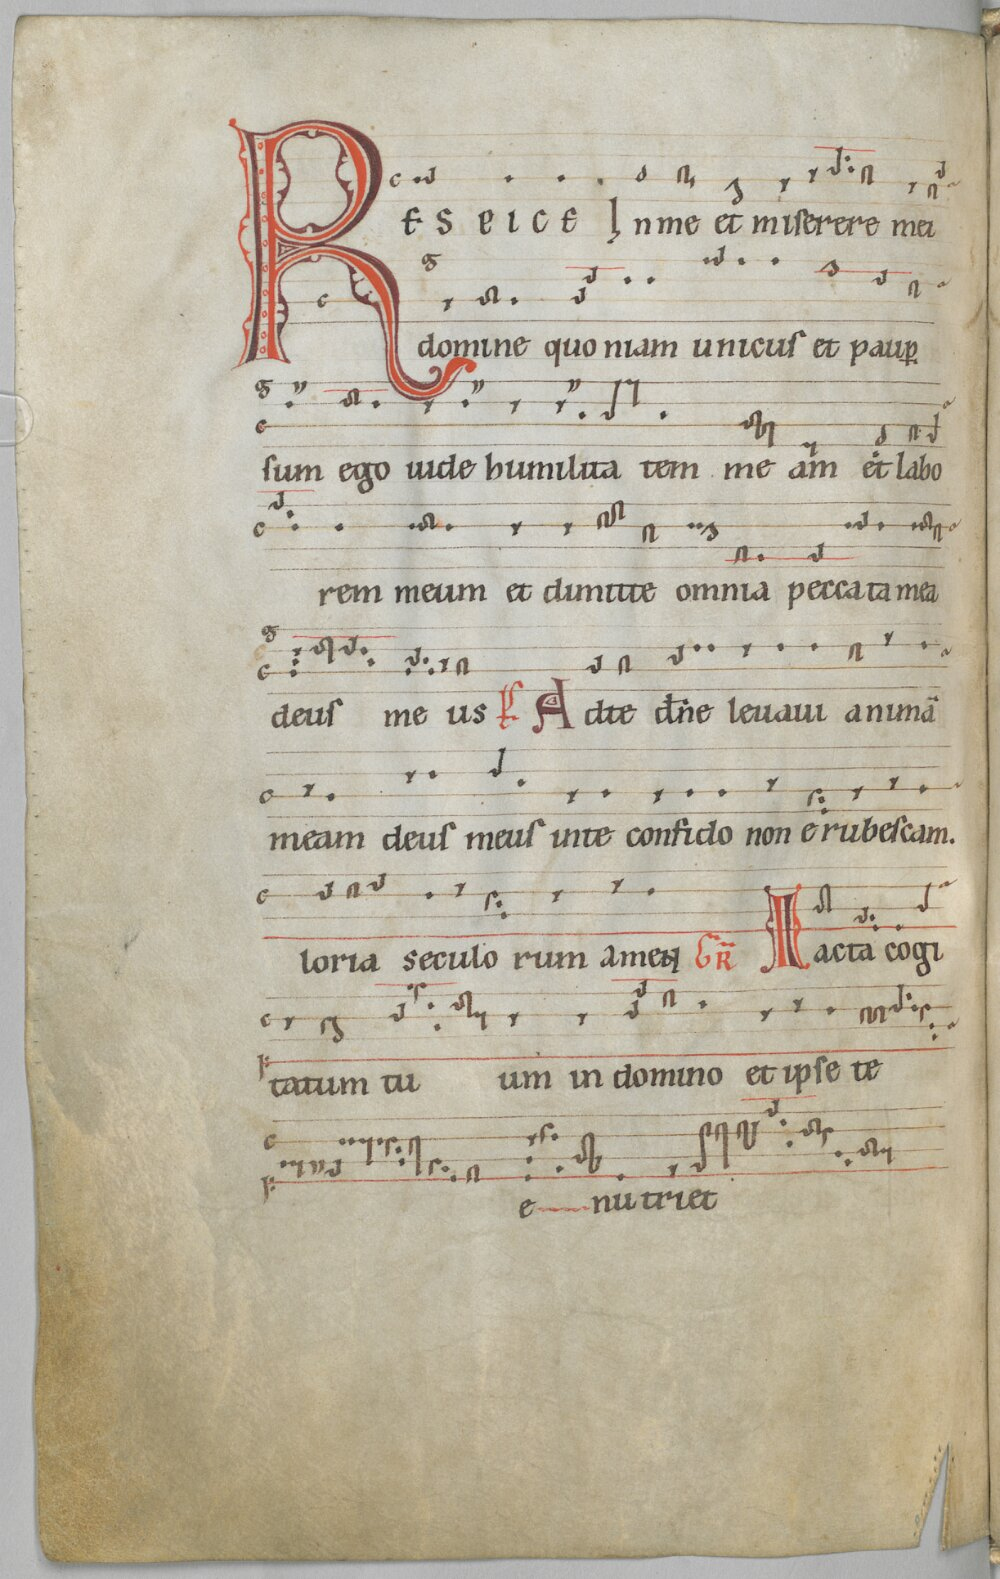 RESPICE Inme et miserere mei
domine quoniam unicus et paup
sum ego uide humilita tem me am et labo
rem meum et dimitte omnia peccata mea
deus me us Ps Adte dne leuaui animā
meam deus meus inte confido non erubescam.
loria seculo rum amen GR Iacta cogi
tatum tu um in domino et ipse te
e nutriet